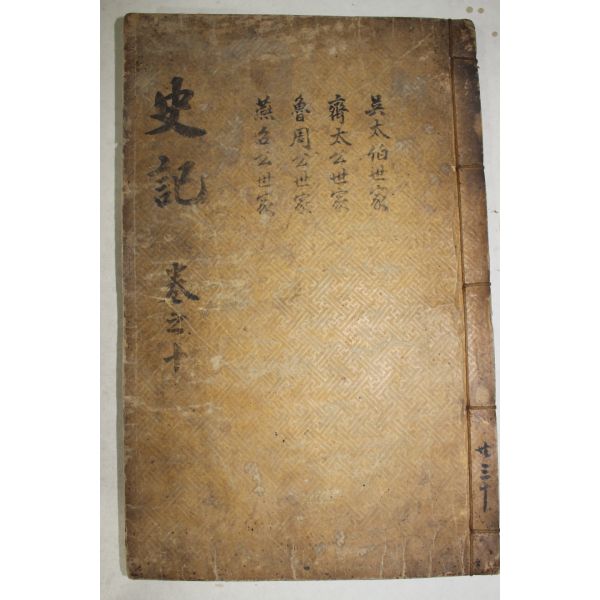 吳太伯世家
齊太公世家
魯周公世家
燕召公世家
史記
卷之十
共三十